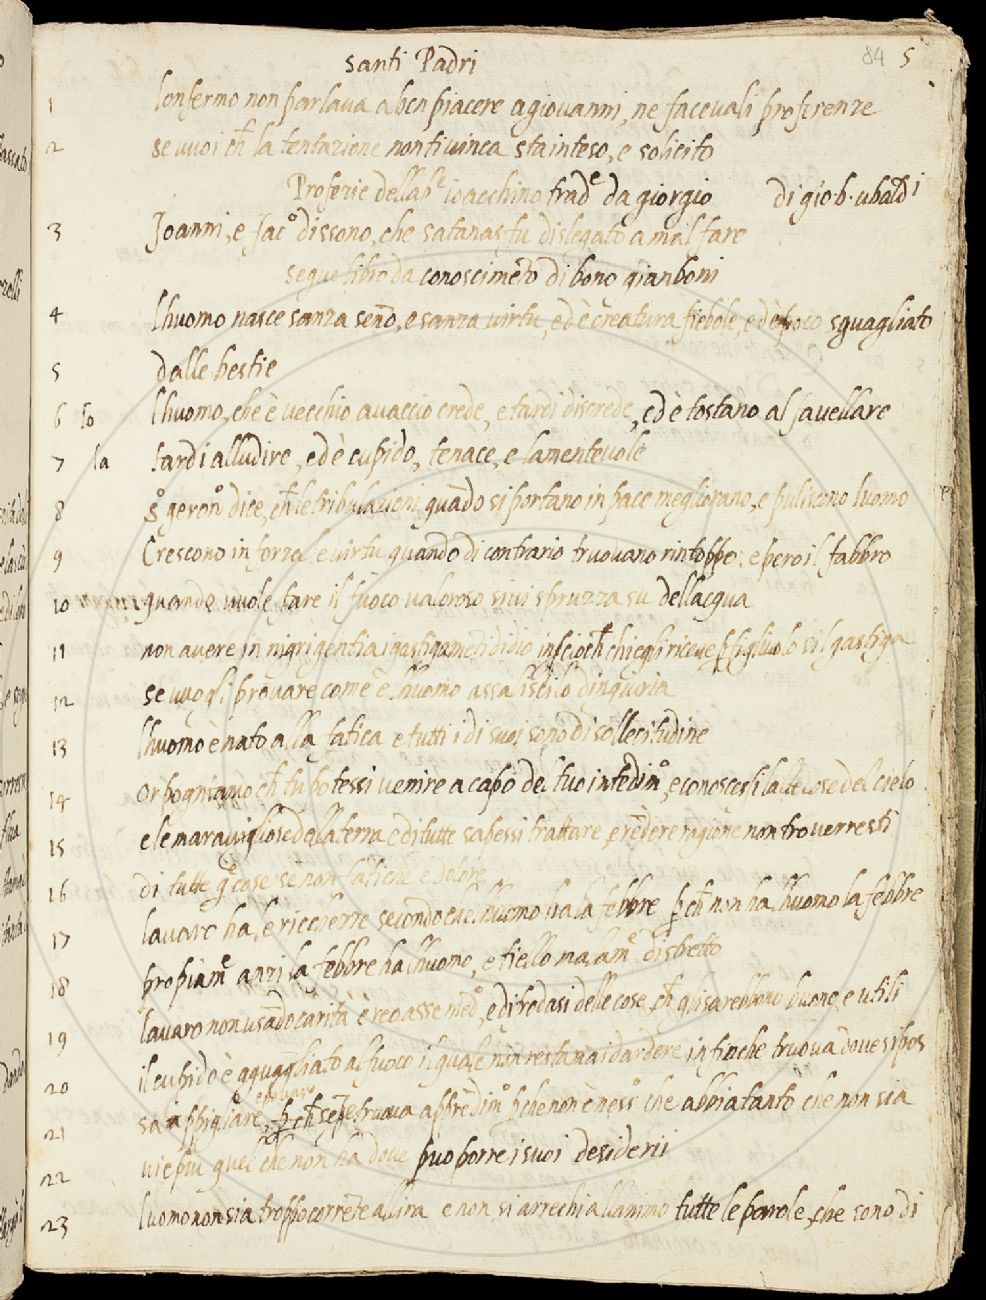 santi Padri 84 5
1 lonfermo non parlava a ben piacere a giovanni, ne facevali proferenze
2 se vuoi ch̄ la tentazione non ti vinca sta inteso, e solicito
Profezie dell ab.e ioacchino frad.e da giorgio di gio b. ubaldi
3 Joanni, e Jac.o dissono, che satanas fu dislegato a mal fare
segue libro da conoscimēto di bono gianboni
4 lhuomo nasce sanza sēno, e sanza virtu, ed è creatura fiebole, ed è poco sguagliato
5 dalle bestie
6 lo lhuomo, che è vecchio avaccio crede, e tardi discrede, ed è tostano al favellare
7 la tardi alludire, ed è cupido, tenace, e lamentevole
8 s.o geron.o dice, ch̄ le tribulazioni quādo si portano in pace megliorano, e puliscono luomo
9 Crescono in forza le virtu quando di contrario truovano rintoppo: e pero il fabbro
10 quando vuole fare il fuoco valoroso sivi spruzza su dellacqua
11 non avere in nigrigentia i gastigamēti didio chi egli riceve figliuolo si l gastiga
12 se vuogli provare come è lhuomo assai dingiuria
13 lhuomo è nato alla fatica e tutti i di suoi sono di sollecitudine
14 or pogniamo ch̄ tu potessi venire a capo del tuo intēdim.o, e conoscessi la le cose del cielo
15 e le maravigliose della terra e di tutte sapessi trattare e rēdere ragione non troverresti
16 di tutte q̄ cose se non fatiche e dolore
17 lavaro ha le ricchezze secondo che lhuomo ha la febbre p̄ch̄ non ha lhuomo la febbre
18 propiam.e anzi la febbre ha lhuomo, e tiello malam.e distretto
19 lavaro non usādo carità è reo asse med.o, e difredasi delle cose ch̄ gli sarebbono buone, e utili
20 il cupido è aguagliato al fuoco il quale non resta mai dardere infinche truova dove si pos
21 sa appigliare, p̄ch̄ truova apprēdim.o p̄ che non è ness.o che abbia tanto che non sia
22 vie piu quel che non ha dove puo porre i suoi desiderii
23 luomo non sia troppo corrēte allira e non si arrechi allanimo tutte le parole, che sono di